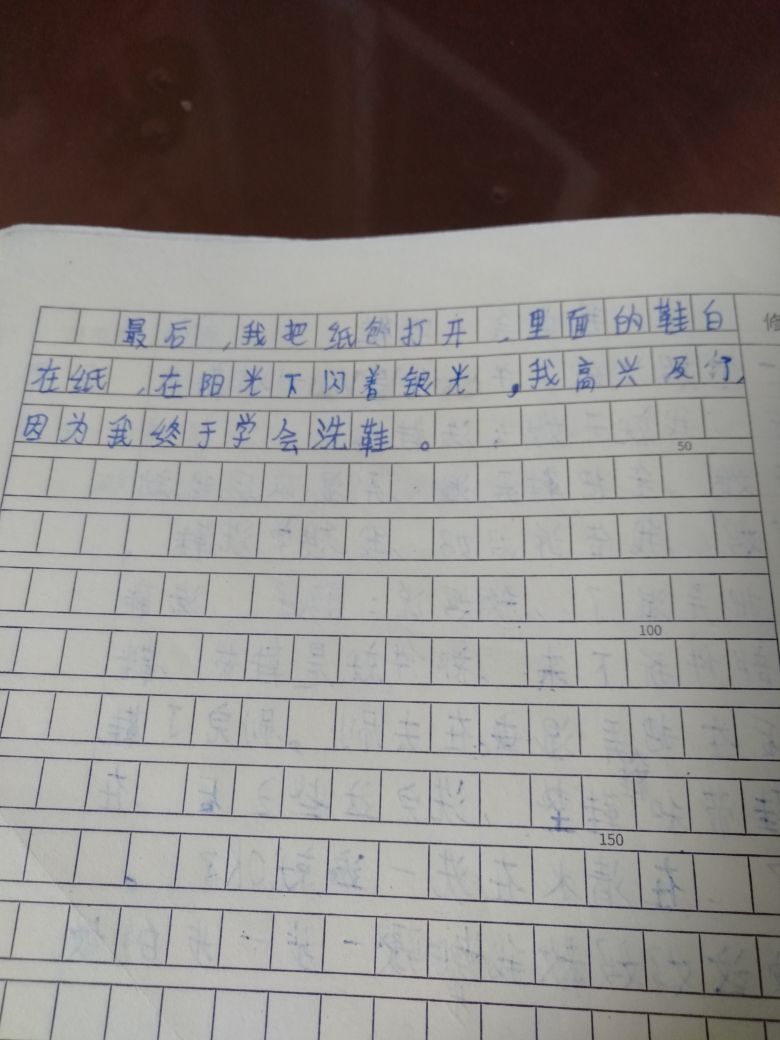 最后,我把纸包打开,里面的鞋白
在纸,在阳光下闪着银光,我高兴及了,
因为我终于学会洗鞋。
50
100
150